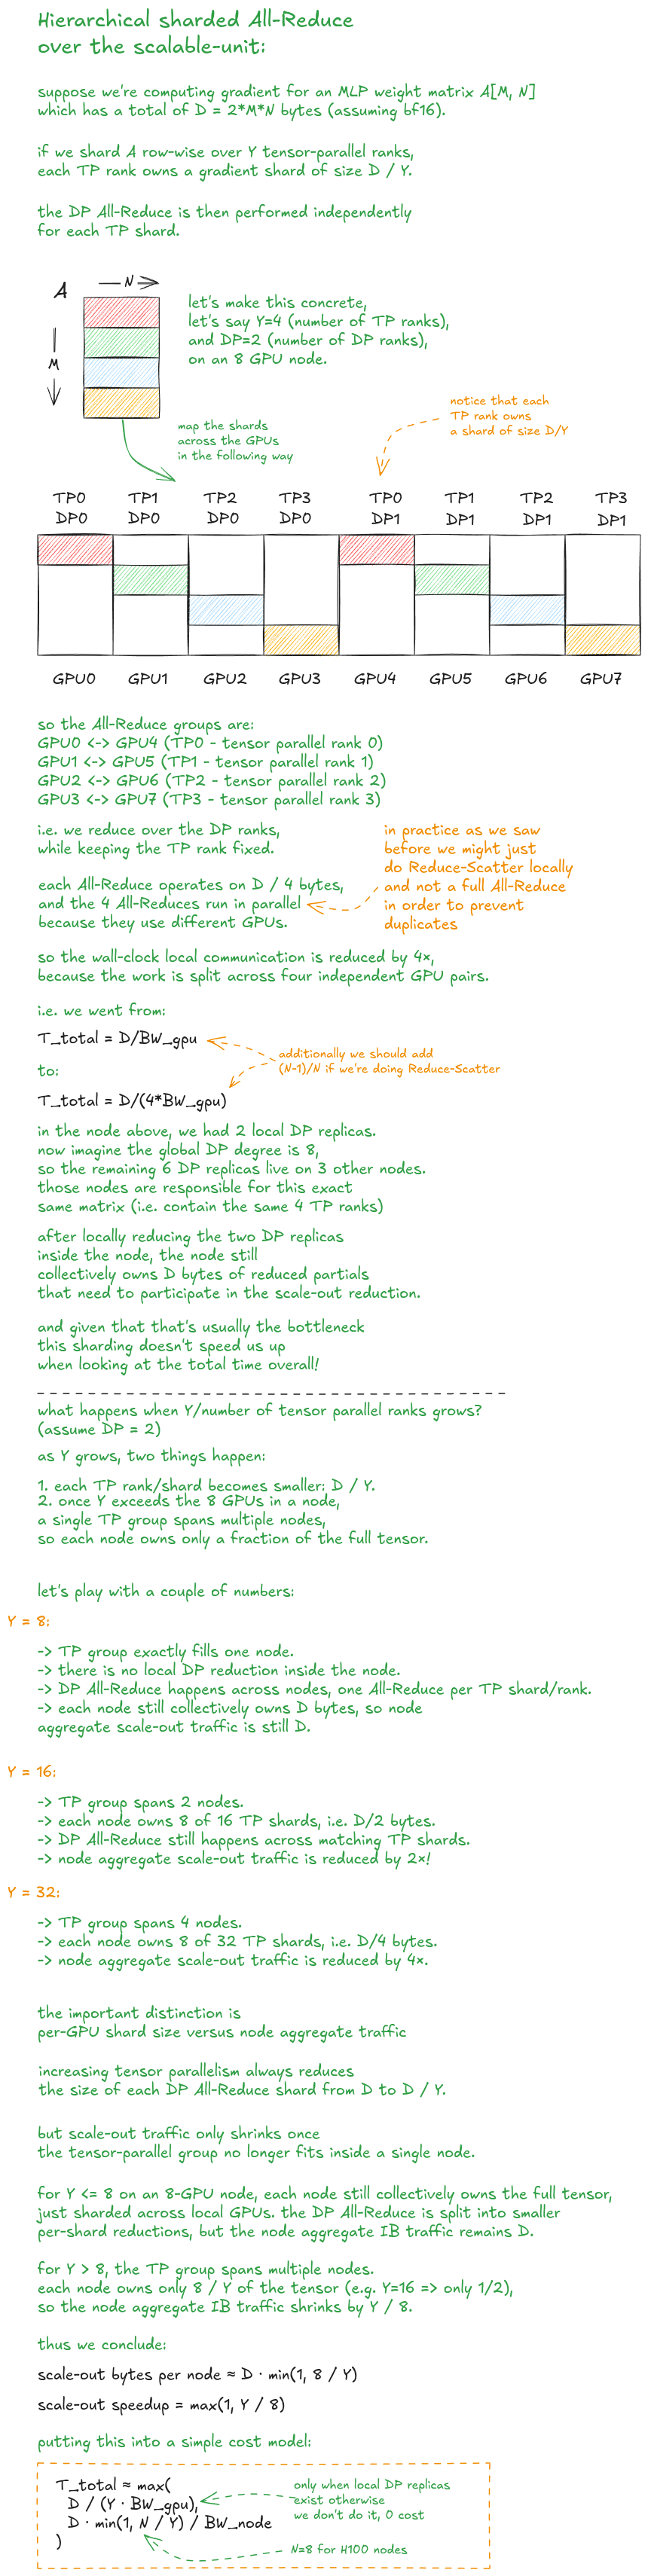 Hierarchical sharded All-Reduce
over the scalable-unit:
suppose we're computing gradient for an MLP weight matrix A[M, N]
which has a total of D = 2*M*N bytes (assuming bf16).
if we shard A row-wise over Y tensor-parallel ranks,
each TP rank owns a gradient shard of size D / Y.
the DP All-Reduce is then performed independently
for each TP shard.
A
N
M
let's make this concrete,
let's say Y=4 (number of TP ranks),
and DP=2 (number of DP ranks),
on an 8 GPU node.
notice that each
TP rank owns
a shard of size D/Y
map the shards
across the GPUs
in the following way
TP0 TP1 TP2 TP3 TP0 TP1 TP2 TP3
DP0 DP0 DP0 DP0 DP1 DP1 DP1 DP1
GPU0 GPU1 GPU2 GPU3 GPU4 GPU5 GPU6 GPU7
so the All-Reduce groups are:
GPU0 <-> GPU4 (TP0 - tensor parallel rank 0)
GPU1 <-> GPU5 (TP1 - tensor parallel rank 1)
GPU2 <-> GPU6 (TP2 - tensor parallel rank 2)
GPU3 <-> GPU7 (TP3 - tensor parallel rank 3)
i.e. we reduce over the DP ranks,
while keeping the TP rank fixed.
each All-Reduce operates on D / 4 bytes,
and the 4 All-Reduces run in parallel
because they use different GPUs.
in practice as we saw
before we might just
do Reduce-Scatter locally
and not a full All-Reduce
in order to prevent
duplicates
so the wall-clock local communication is reduced by 4x,
because the work is split across four independent GPU pairs.
i.e. we went from:
T_total = D/BW_gpu
additionally we should add
(N-1)/N if we're doing Reduce-Scatter
to:
T_total = D/(4*BW_gpu)
in the node above, we had 2 local DP replicas.
now imagine the global DP degree is 8,
so the remaining 6 DP replicas live on 3 other nodes.
those nodes are responsible for this exact
same matrix (i.e. contain the same 4 TP ranks)
after locally reducing the two DP replicas
inside the node, the node still
collectively owns D bytes of reduced partials
that need to participate in the scale-out reduction.
and given that that's usually the bottleneck
this sharding doesn't speed us up
when looking at the total time overall!
what happens when Y/number of tensor parallel ranks grows?
(assume DP = 2)
as Y grows, two things happen:
1. each TP rank/shard becomes smaller: D / Y.
2. once Y exceeds the 8 GPUs in a node,
a single TP group spans multiple nodes,
so each node owns only a fraction of the full tensor.
let's play with a couple of numbers:
Y = 8:
-> TP group exactly fills one node.
-> there is no local DP reduction inside the node.
-> DP All-Reduce happens across nodes, one All-Reduce per TP shard/rank.
-> each node still collectively owns D bytes, so node
aggregate scale-out traffic is still D.
Y = 16:
-> TP group spans 2 nodes.
-> each node owns 8 of 16 TP shards, i.e. D/2 bytes.
-> DP All-Reduce still happens across matching TP shards.
-> node aggregate scale-out traffic is reduced by 2x!
Y = 32:
-> TP group spans 4 nodes.
-> each node owns 8 of 32 TP shards, i.e. D/4 bytes.
-> node aggregate scale-out traffic is reduced by 4x.
the important distinction is
per-GPU shard size versus node aggregate traffic
increasing tensor parallelism always reduces
the size of each DP All-Reduce shard from D to D / Y.
but scale-out traffic only shrinks once
the tensor-parallel group no longer fits inside a single node.
for Y <= 8 on an 8-GPU node, each node still collectively owns the full tensor,
just sharded across local GPUs. the DP All-Reduce is split into smaller
per-shard reductions, but the node aggregate IB traffic remains D.
for Y > 8, the TP group spans multiple nodes.
each node owns only 8 / Y of the tensor (e.g. Y=16 => only 1/2),
so the node aggregate IB traffic shrinks by Y / 8.
thus we conclude:
scale-out bytes per node ≈ D · min(1, 8 / Y)
scale-out speedup = max(1, Y / 8)
putting this into a simple cost model:
T_total ≈ max(
D / (Y · BW_gpu),
D · min(1, N / Y) / BW_node
)
only when local DP replicas
exist otherwise
we don't do it, 0 cost
N=8 for H100 nodes